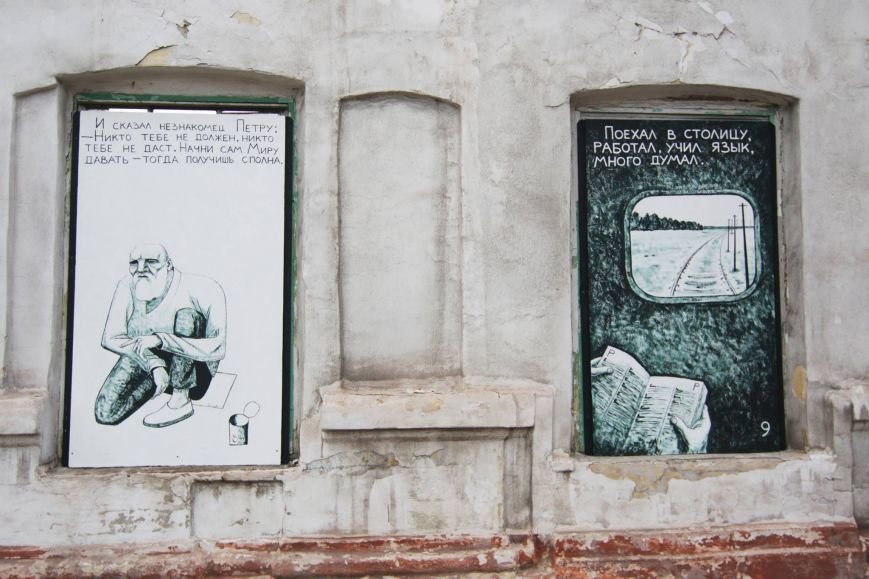 И СКАЗАЛ НЕЗНАКОМЕЦ ПЕТРУ:
—НИКТО ТЕБЕ НЕ ДОЛЖЕН. НИКТО
ТЕБЕ НЕ ДАСТ. НАЧНИ САМ МИРУ
ДАВАТЬ — ТОГДА ПОЛУЧИШЬ СПОЛНА.
ПОЕХАЛ В СТОЛИЦУ,
РАБОТАЛ, УЧИЛ ЯЗЫК,
МНОГО ДУМАЛ.
Р
Р
9